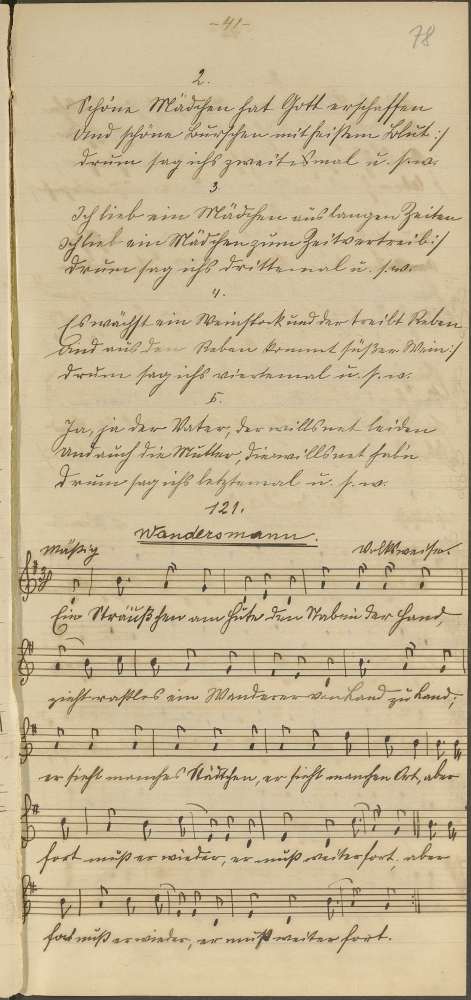 -41-
78
2.
Schöne Mädchen hat Gott erschaffen
Und schöne Burschen mit heißem Blut :/
Drum sag ichs zweitesmal u. s. w.
3.
Ich lieb ein Mädchen aus langen Zeiten
Ich lieb ein Mädchen zum Zeitvertreib :/
Drum sag ichs drittemal u. s. w.
4.
Es wächst ein Weinstock und der treibt Reben
Und aus den Reben kommt süßer Wein :/
Drum sag ichs viertemal u. s. w.
5.
Ja, ja der Vater, der wills net leiden
Und auch die Mutter, die wills net hab'n
Drum sag ichs letztemal u. s. w.
121.
Wandersmann.
Mäßig Volksweise.
Ein Sträußchen am Hute den Stab in der Hand,
zieht rastlos ein Wanderer von Land zu Land;
er sieht manches Städtchen, er sieht manchen Ort, aber
fort muß er wieder, er muß weiter fort, aber
fort muß er wieder, er muß weiter fort.